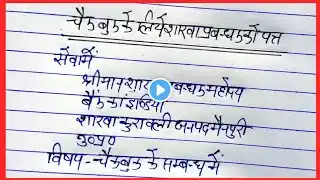 चैक बुक के लिये शाखा प्रबन्धक को पत्र
सेवा में
श्रीमान शाखा प्रबन्धक महोदय
बैंक ऑफ इण्डिया
शाखा कुरावली जनपद मैनपुरी
उ०प्र०
विषय - चैकबुक के सम्बन्ध में